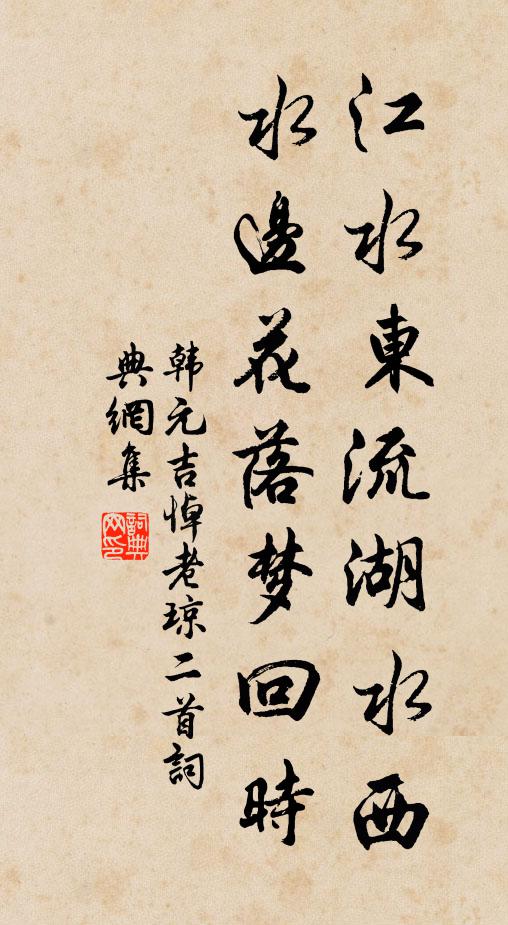 江水東流湖水西
水邊花落梦回時
韩元吉悼老琼二首詞
典網集
詞典
网印